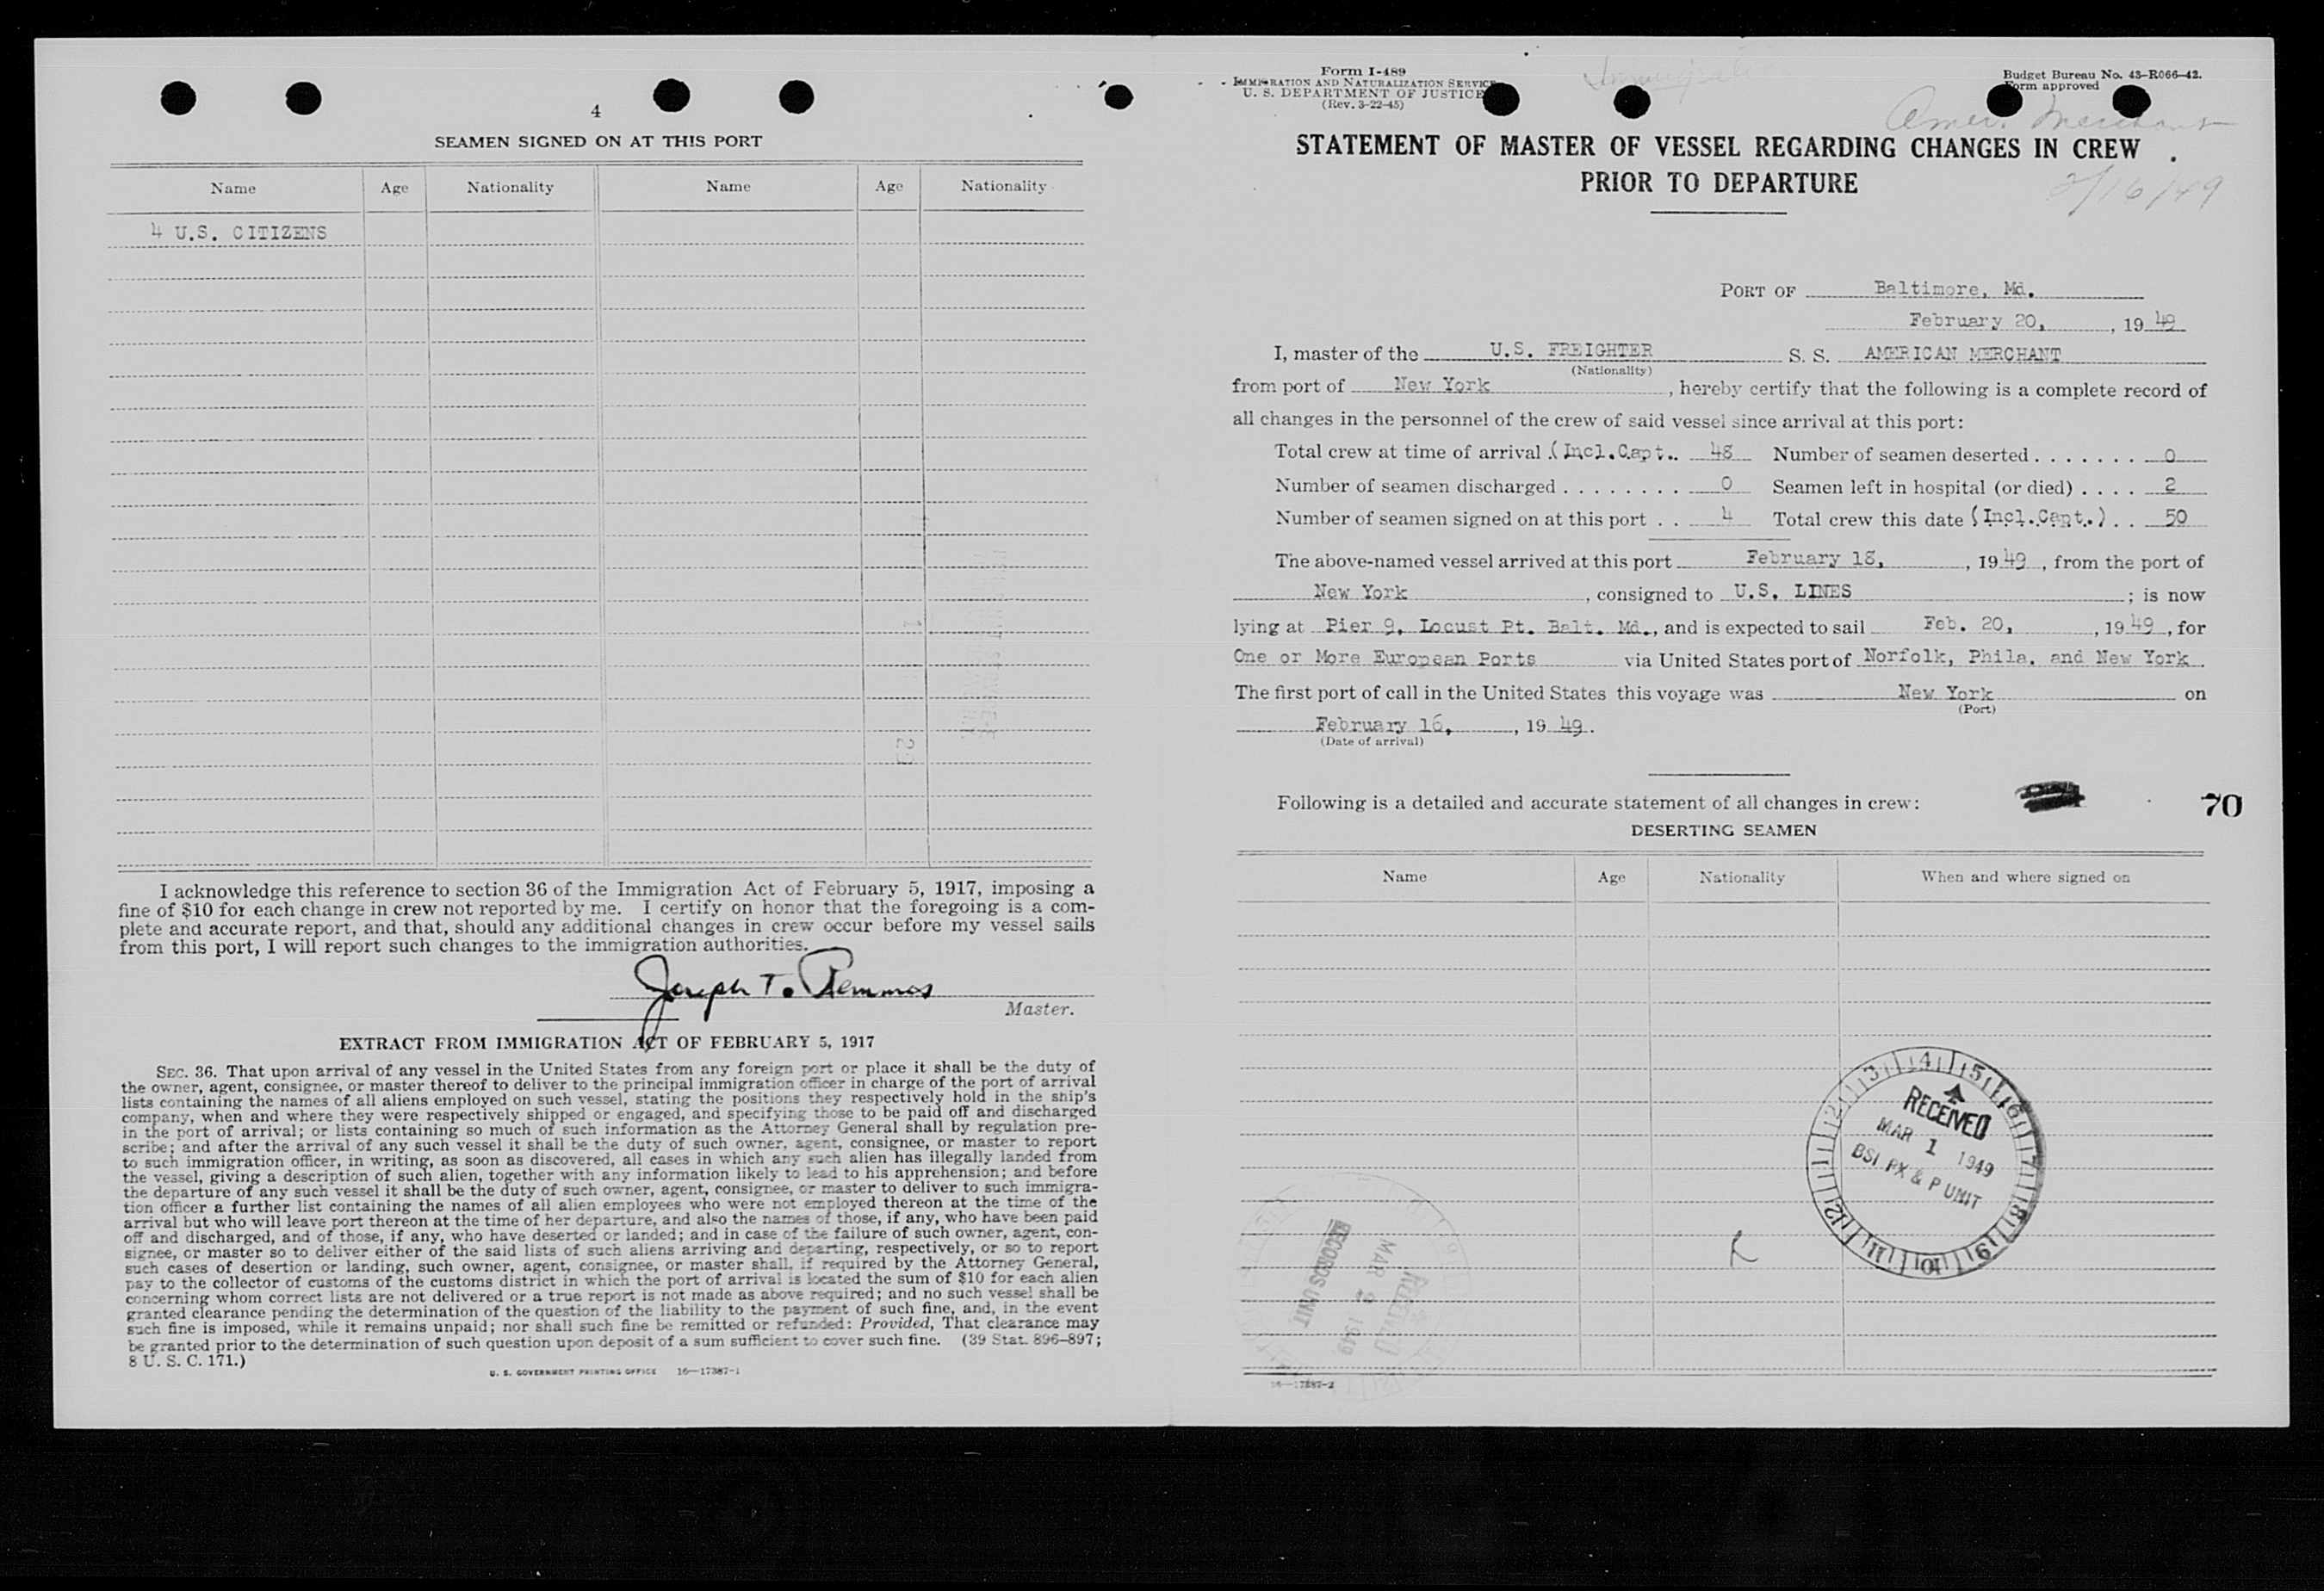 4
SEAMEN SIGNED ON AT THIS PORT
Name Age Nationality Name Age Nationality
4 U.S. CITIZENS
I acknowledge this reference to section 36 of the Immigration Act of February 5, 1917, imposing a
fine of $10 for each change in crew not reported by me. I certify on honor that the foregoing is a com-
plete and accurate report, and that, should any additional changes in crew occur before my vessel sails
from this port, I will report such changes to the immigration authorities.
Joseph T.
Master.
EXTRACT FROM IMMIGRATION ACT OF FEBRUARY 5, 1917
SEC. 36. That upon arrival of any vessel in the United States from any foreign port or place it shall be the duty of
the owner, agent, consignee, or master thereof to deliver to the principal immigration officer in charge of the port of arrival
lists containing the names of all aliens employed on such vessel, stating the positions they respectively hold in the ship's
company, when and where they were respectively shipped or engaged, and specifying those to be paid off and discharged
in the port of arrival; or lists containing so much of such information as the Attorney General shall by regulation pre-
scribe; and after the arrival of any such vessel it shall be the duty of such owner, agent, consignee, or master to report
to such immigration officer, in writing, as soon as discovered, all cases in which any such alien has illegally landed from
the vessel, giving a description of such alien, together with any information likely to lead to his apprehension; and before
the departure of any such vessel it shall be the duty of such owner, agent, consignee, or master to deliver to such immigra-
tion officer a further list containing the names of all alien employees who were not employed thereon at the time of the
arrival but who will leave port thereon at the time of her departure, and also the names of those, if any, who have been paid
off and discharged, and of those, if any, who have deserted or landed; and in case of the failure of such owner, agent, con-
signee, or master so to deliver either of the said lists of such aliens arriving and departing, respectively, or so to report
such cases of desertion or landing, such owner, agent, consignee, or master shall, if required by the Attorney General,
pay to the collector of customs of the customs district in which the port of arrival is located the sum of $10 for each alien
concerning whom correct lists are not delivered or a true report is not made as above required; and no such vessel shall be
granted clearance pending the determination of the question of the liability to the payment of such fine, and, in the event
such fine is imposed, while it remains unpaid; nor shall such fine be remitted or refunded: Provided, That clearance may
be granted prior to the determination of such question upon deposit of a sum sufficient to cover such fine. (39 Stat. 896–897;
8 U. S. C. 171.)
U. S. GOVERNMENT PRINTING OFFICE 16—17387-1
Form I-489
IMMIGRATION AND NATURALIZATION SERVICE
U. S. DEPARTMENT OF JUSTICE
(Rev. 3-22-45)
Budget Bureau No. 43-R066-42.
Form approved
Amer. Merchant
STATEMENT OF MASTER OF VESSEL REGARDING CHANGES IN CREW
PRIOR TO DEPARTURE
2/16/49
PORT OF Baltimore, Md.
February 20, , 19 49
I, master of the U.S. FREIGHTER S. S. AMERICAN MERCHANT
(Nationality)
from port of New York , hereby certify that the following is a complete record of
all changes in the personnel of the crew of said vessel since arrival at this port:
Total crew at time of arrival (Incl.Capt.. 48 Number of seamen deserted . . . . . . . 0
Number of seamen discharged . . . . . . . . 0 Seamen left in hospital (or died) . . . . 2
Number of seamen signed on at this port . . 4 Total crew this date (Incl.Capt.) . . 50
The above-named vessel arrived at this port February 18, , 19 49 , from the port of
New York , consigned to U.S. LINES ; is now
lying at Pier 9, Locust Pt. Balt. Md., and is expected to sail Feb. 20, , 19 49 , for
One or More European Ports via United States port of Norfolk, Phila. and New York
The first port of call in the United States this voyage was New York on
(Port)
February 16, , 19 49 .
(Date of arrival)
Following is a detailed and accurate statement of all changes in crew:
70
DESERTING SEAMEN
Name Age Nationality When and where signed on
1 2 3 4 5 6 7 8 9 10 11 12
RECEIVED
MAR 1 1949
BSI PX & P UNIT
RECEIVED
MAR 2 1949
RECORDS UNIT
16—17387-2